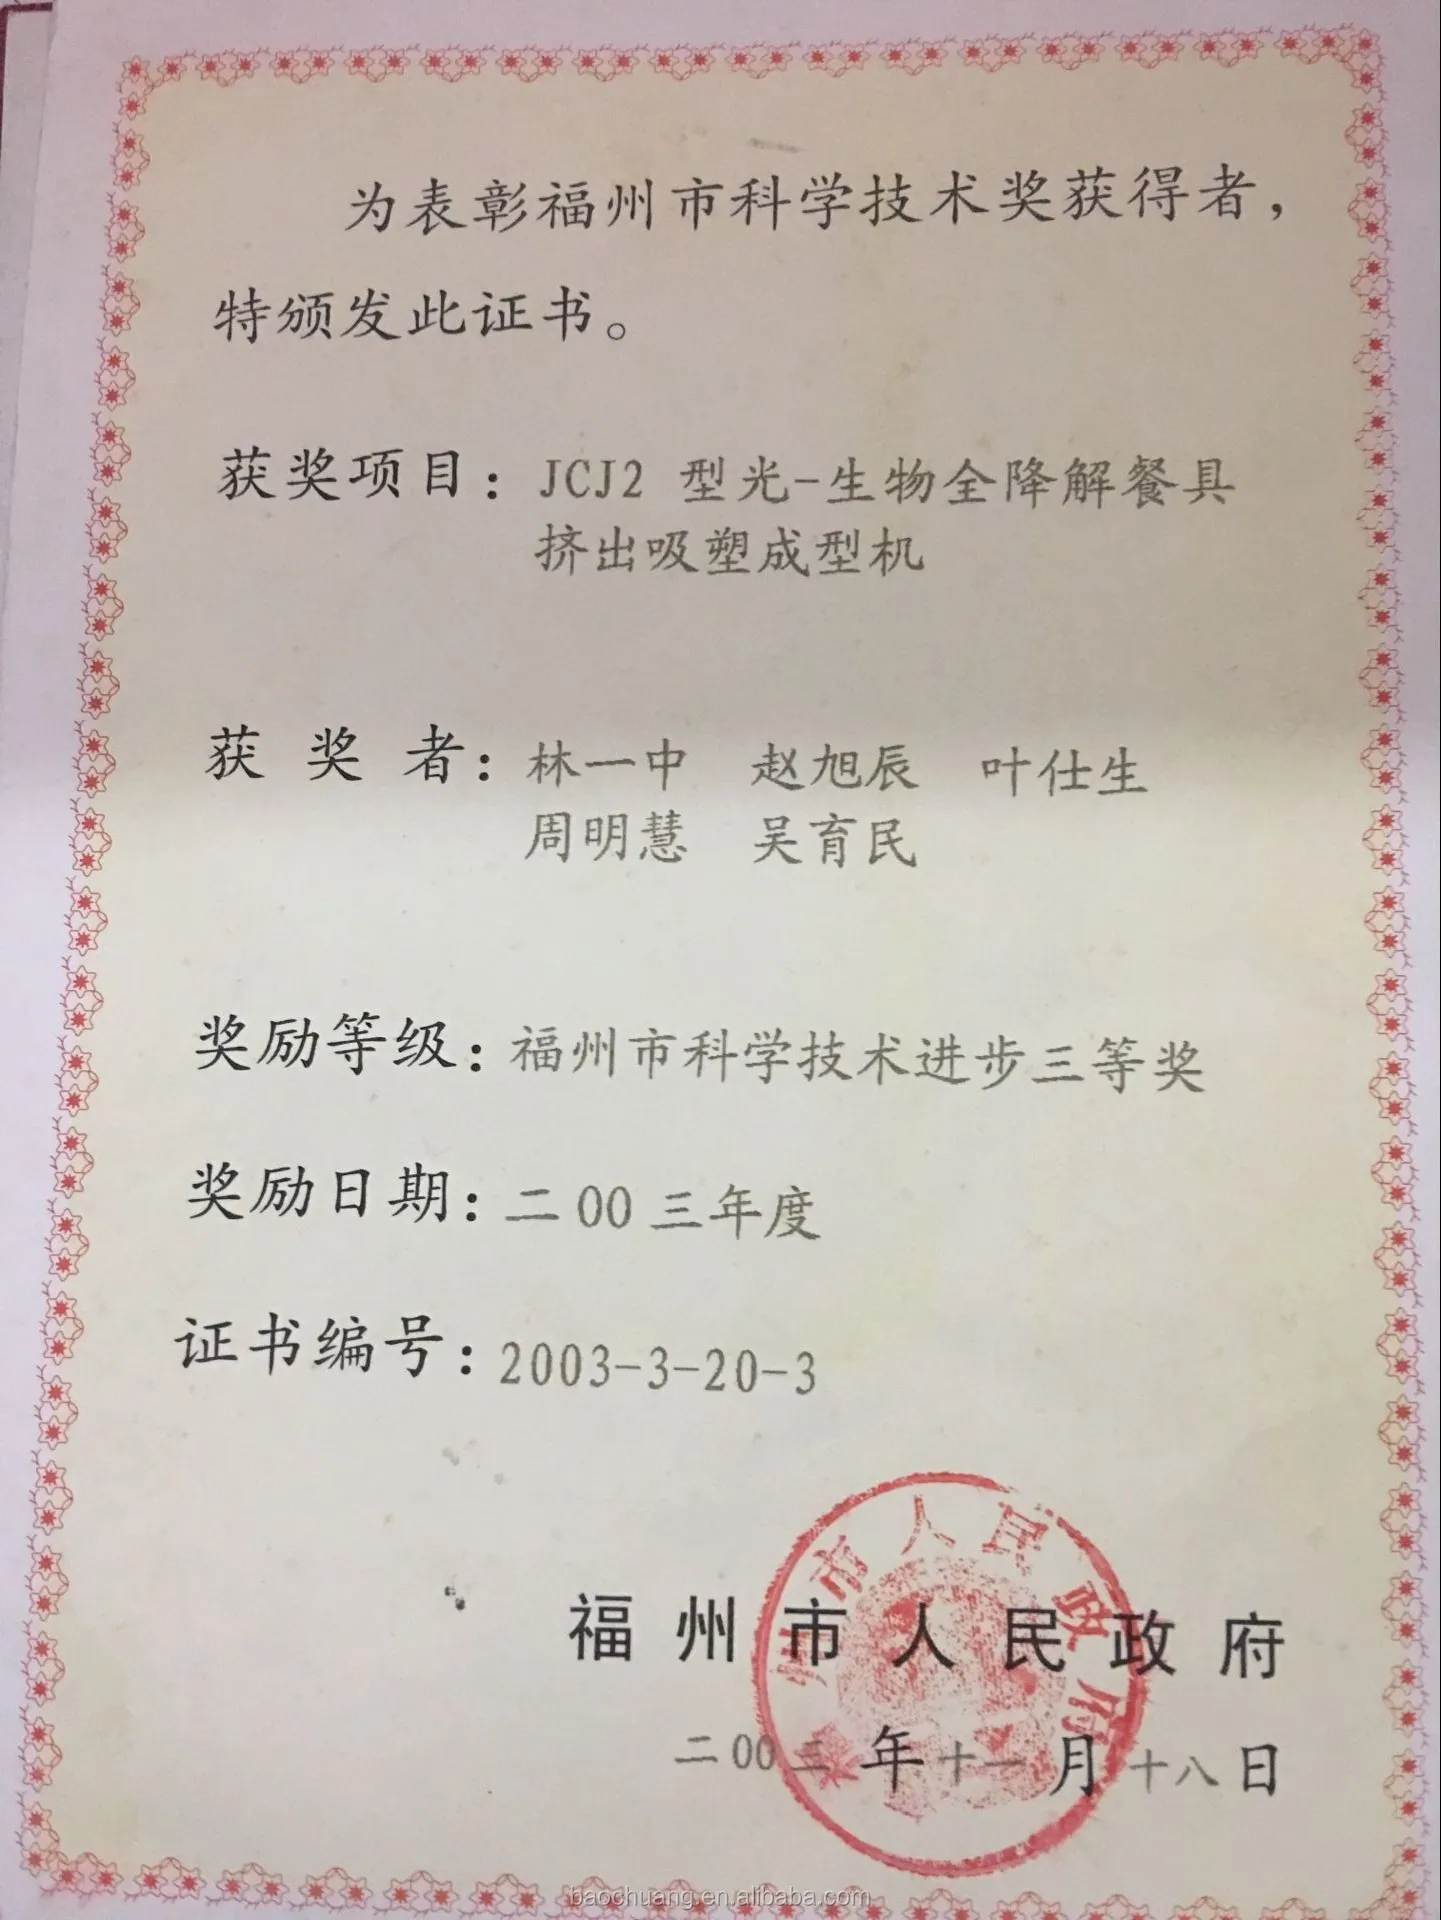 为表彰福州市科学技术奖获得者，
特颁发此证书。
获奖项目：JCJ2 型光-生物全降解餐具
挤出吸塑成型机
获奖者：林一中 赵旭辰 叶仕生
周明慧 吴育民
奖励等级：福州市科学技术进步三等奖
奖励日期：二00三年度
证书编号：2003-3-20-3
州市人民政府
福州市人民政府
二00三年十一月十八日
baochuang.en.alibaba.com